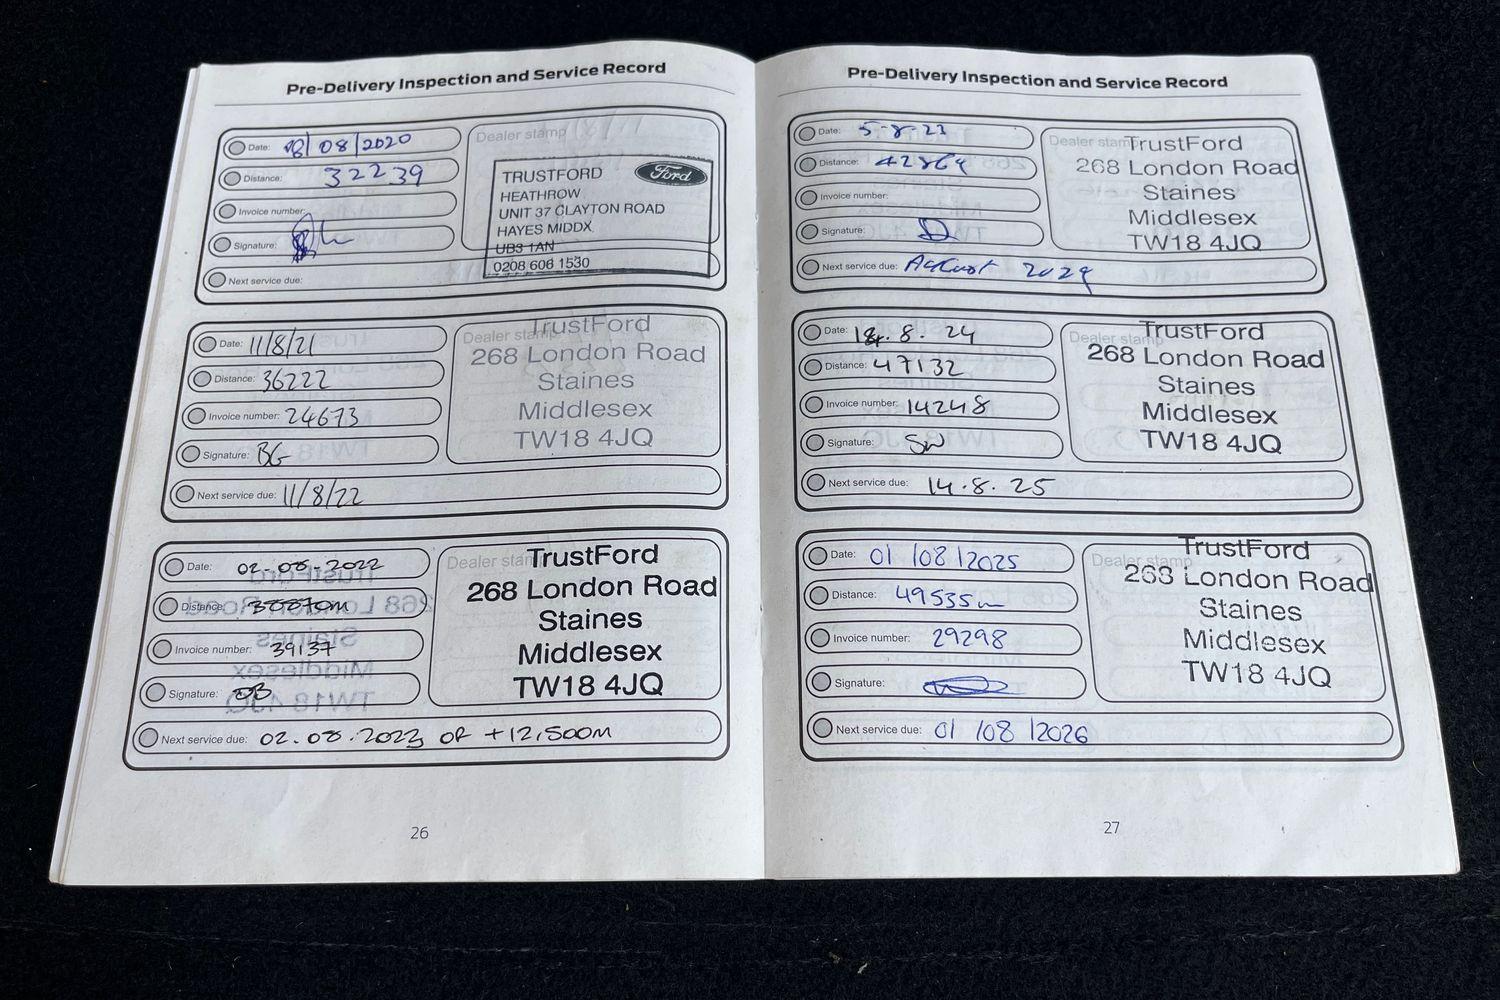 Pre-Delivery Inspection and Service Record
Date: 08/2020
Distance: 32239
Invoice number:
Signature:
Next service due:
Dealer stamp
TRUSTFORD
Ford
HEATHROW
UNIT 37 CLAYTON ROAD
HAYES MIDDX
UB3 1AN
0208 606 1530
Date: 11/8/21
Distance: 36222
Invoice number: 24673
Signature: BG
Next service due: 11/8/22
Dealer stamp
TrustFord
268 London Road
Staines
Middlesex
TW18 4JQ
Date: 02.08.2022
Distance:
Invoice number: 39137
Signature: DB
Next service due: 02.08.2023 OR +12,500m
Dealer stamp
TrustFord
268 London Road
Staines
Middlesex
TW18 4JQ
26
Pre-Delivery Inspection and Service Record
Date: 5-8-23
Distance: 42869
Invoice number:
Signature:
Next service due: August 2024
Dealer stamp
TrustFord
268 London Road
Staines
Middlesex
TW18 4JQ
Date: 14.8.24
Distance: 47132
Invoice number: 14248
Signature: SW
Next service due: 14.8.25
Dealer stamp
TrustFord
268 London Road
Staines
Middlesex
TW18 4JQ
Date: 01/08/2025
Distance: 49535m
Invoice number: 29298
Signature:
Next service due: 01/08/2026
Dealer stamp
TrustFord
268 London Road
Staines
Middlesex
TW18 4JQ
27